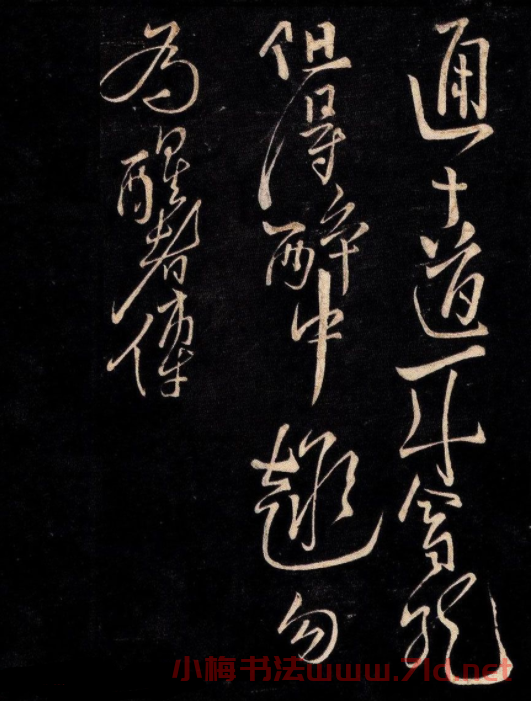 通大道一斗合自然
但得醉中趣勿
為醒者傳
小梅书法www.7ld.net